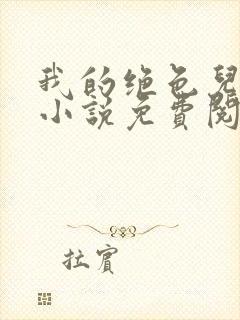 我的绝色兒
小説免費閱
拉賓